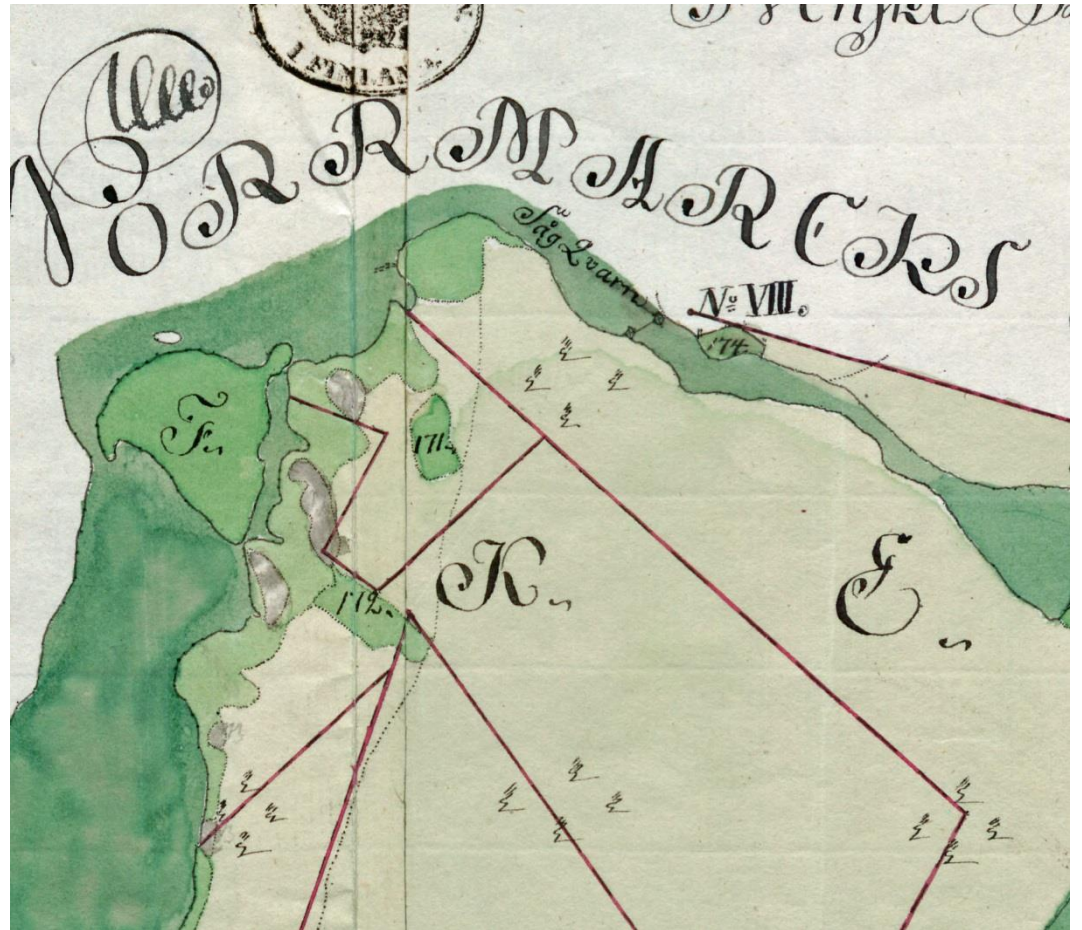 I FINLAND.
Alle
NORRMARCKS
Såg Qvarn
No VIII.
174.
F.
171.
K.
172.
E.